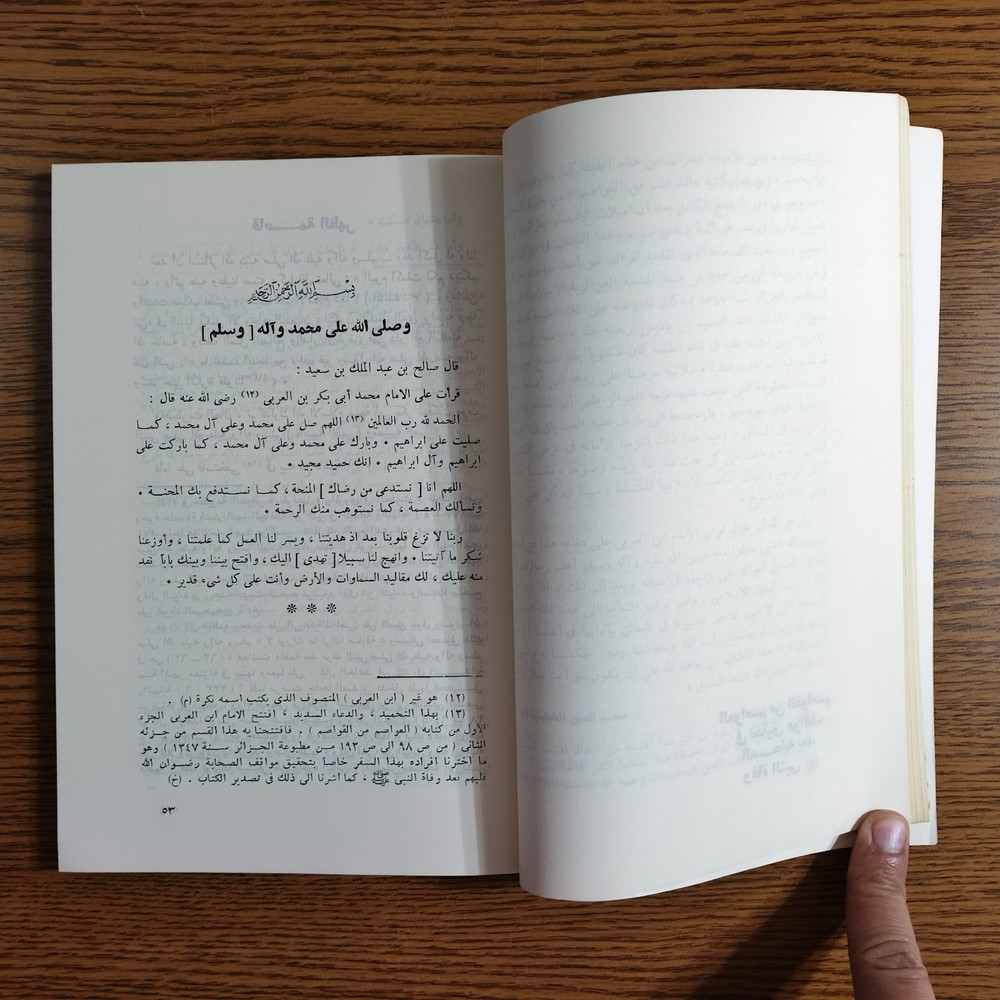 بسم الله الرحمن الرحيم
وصلى الله على محمد وآله [ وسلم ]
قال صالح بن عبد الملك بن سعيد :
قرأت على الامام محمد أبى بكر بن العربى (١٢) رضى الله عنه قال :
الحمد لله رب العالمين (١٣) اللهم صل على محمد وعلى آل محمد ، كمـا
صليت على ابراهيم • وبارك على محمد وعلى آل محمد ، كما باركت على
ابراهيم وآل ابراهيم • انك حميد مجيد •
اللهم انا [ نستدعى من رضاك ] المنحة ، كمـا نسـتدفع بك المحنـة •
ونسألك العصمة ، كما نستوهب منك الرحمة •
ربنا لا تزغ قلوبنا بعد اذ هديتنا ، ويسر لنا العمل كما علمتنا ، وأوزعنا
شكر ما آتيتنا • وانهج لنا سبيلا [ تهدى ] اليك ، وافتح بيننا وبينك بابا نفد
منه عليك ، لك مقاليد السماوات والأرض وأنت على كل شىء قدير •
* * *
(١٢) هو غير ( ابن العربى ) المتصوف الذى يكتب اسمه نكرة (م) .
(١٣) بهذا التحميد ، والدعاء السديد ، افتتح الامام ابن العربى الجزء
الأول من كتابه ( العواصم من القواصم ) . فافتتحنا به هذا القسم من جزئه
الثانى ( من ص ٩٨ الى ص ١٩٣ مـن مطبوعة الجزائر سـنة ١٣٤٧ ) وهو
ما اخترنا افراده بهذا السفر خاصا بتحقيق مواقف الصحابة رضـوان الله
عليهم بعد وفاة النبى ﷺ ، كما أشرنا الى ذلك فى تصدير الكتاب . (خ)
٥٣